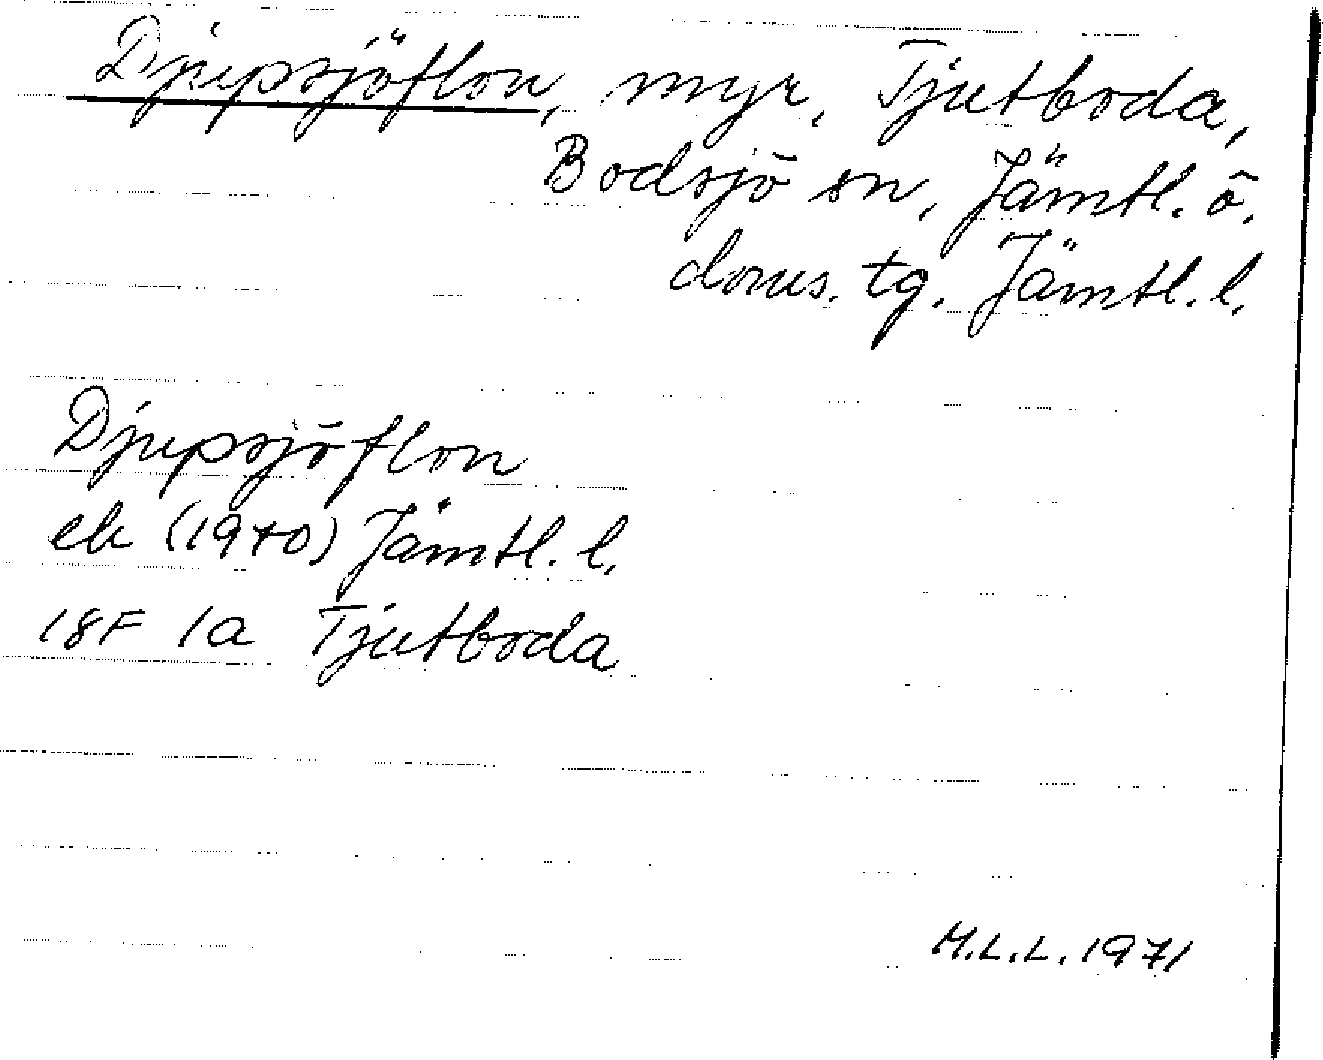 Djupsjöflon, myr, Tjutboda,
Bodsjö sn, Jämtl. ö.
doms. tg. Jämtl. l.
Djupsjöflon
ek (1970) Jämtl. l.
18F 1a Tjutboda
M.L.L. 1971